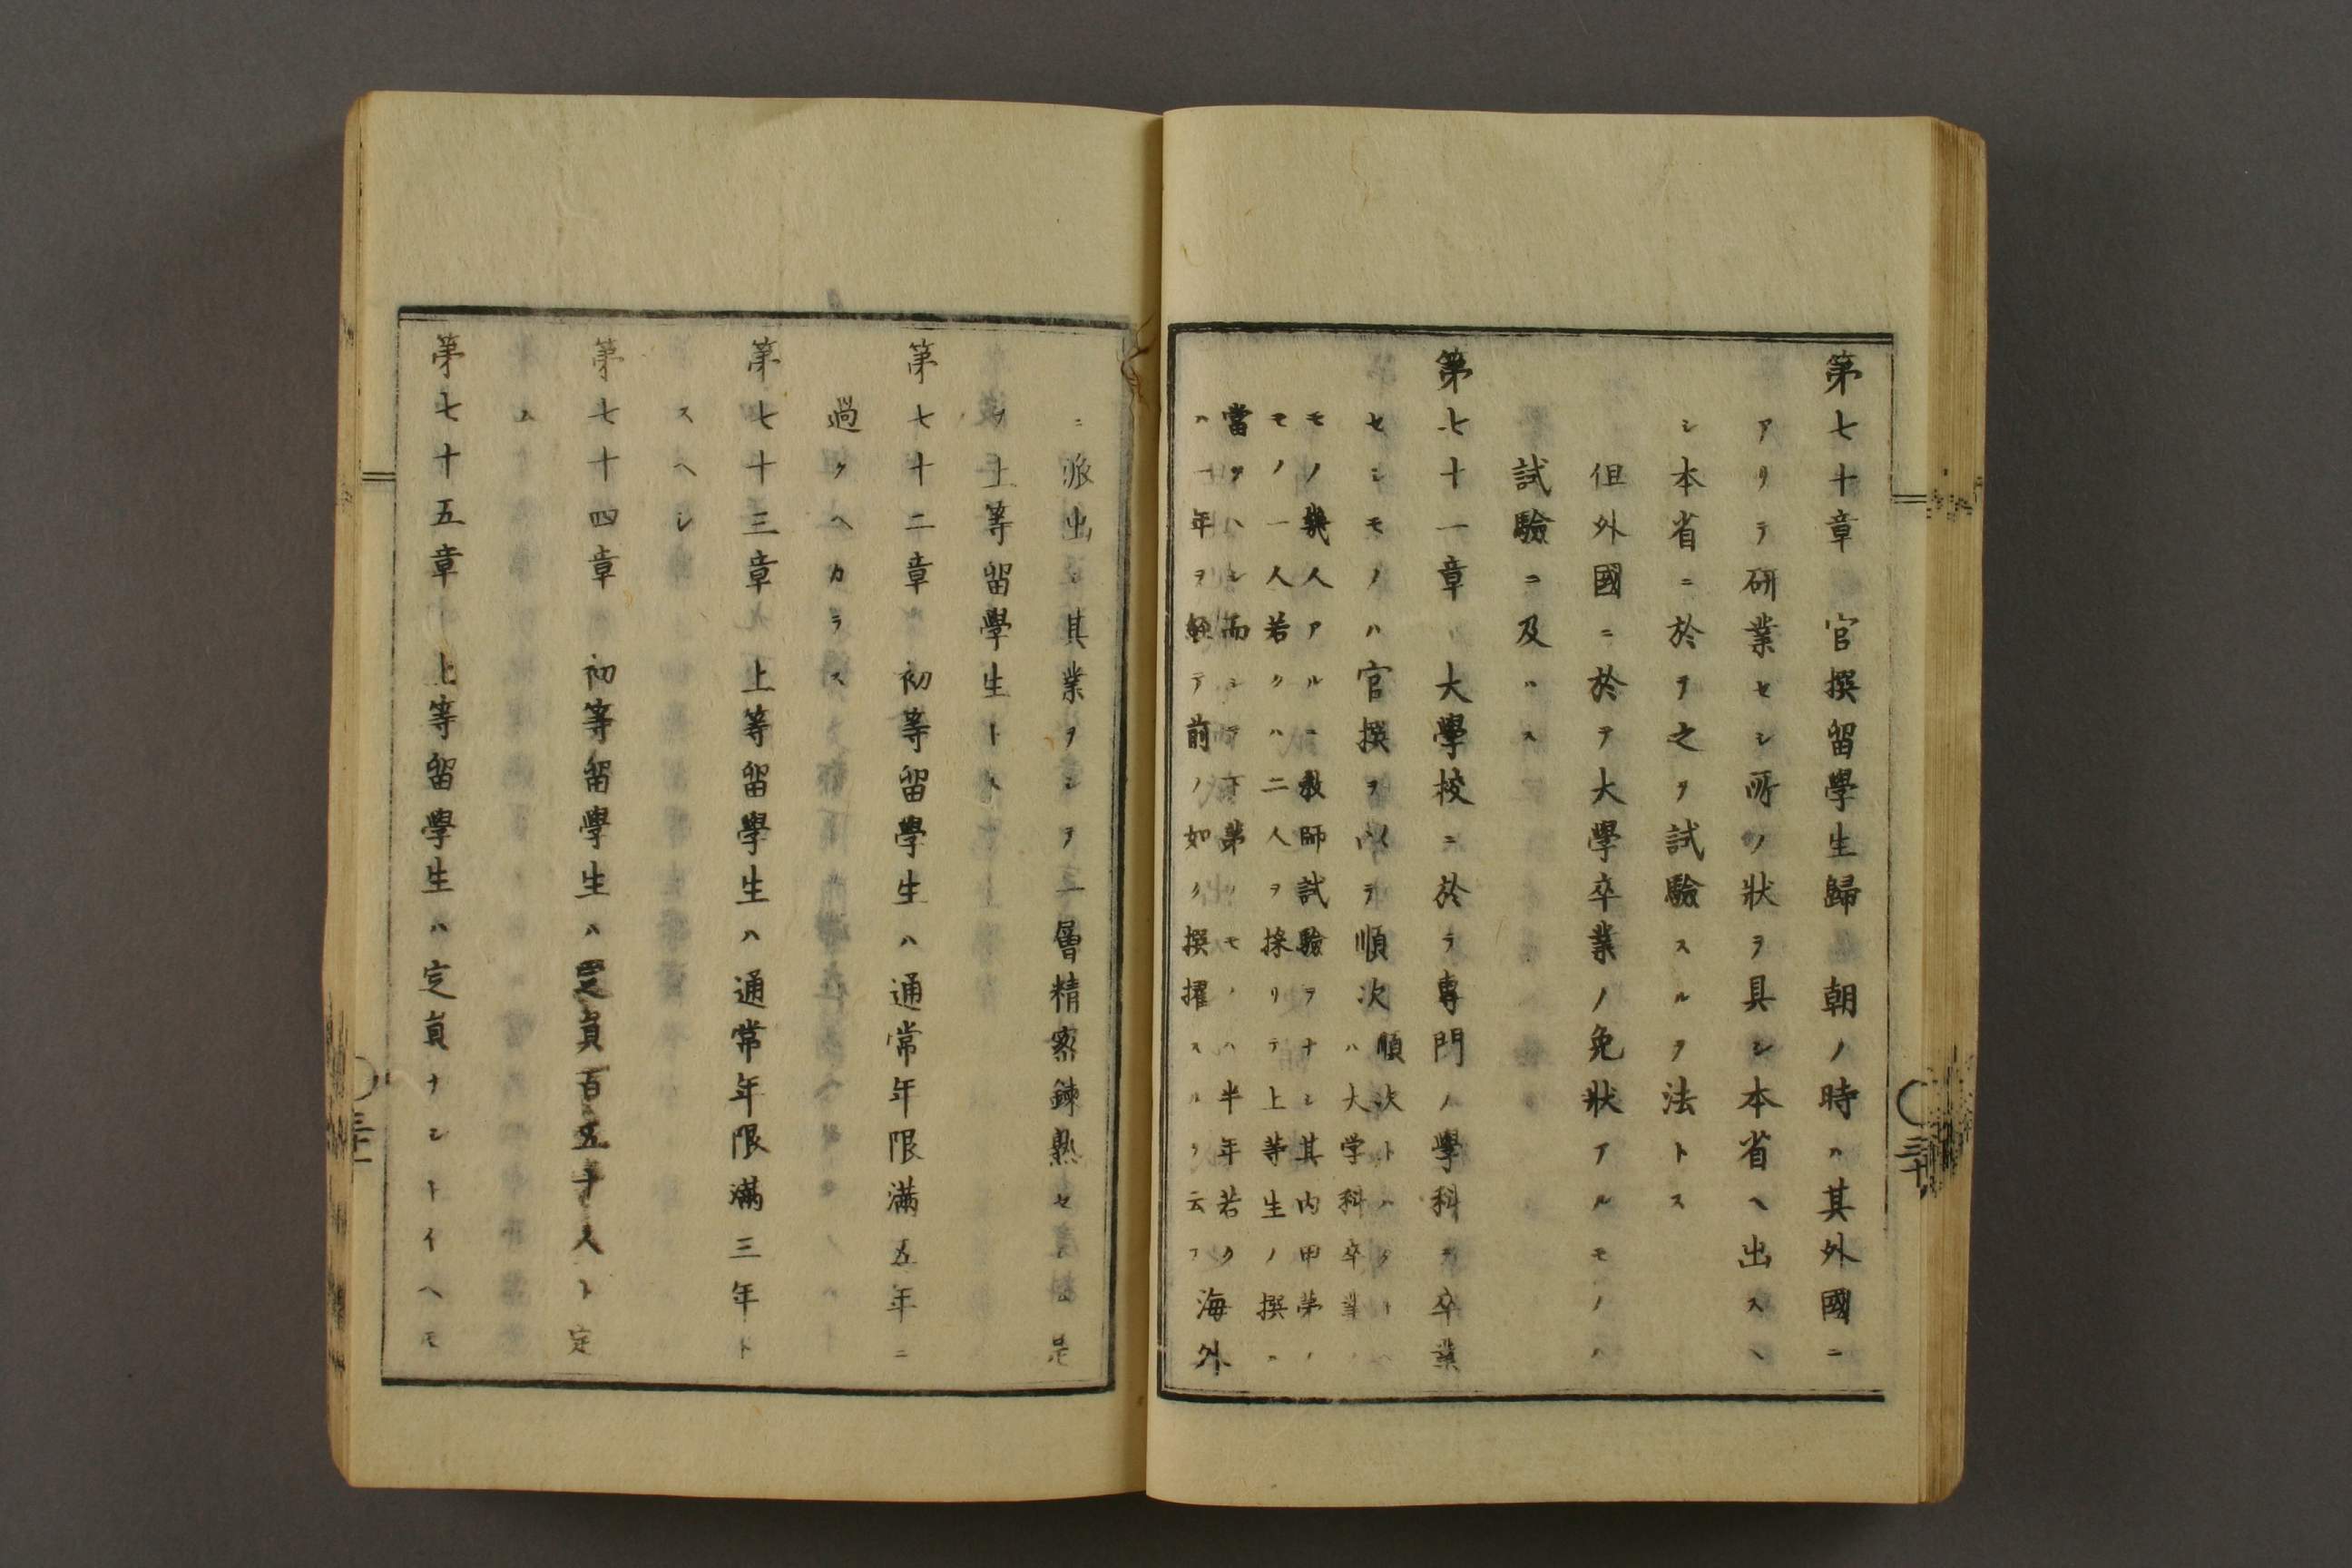 第七十章　官撰留學生歸　朝ノ時ハ其外國ニ
アリテ研業セシ所ノ狀ヲ具シ本省ヘ出スヘ
シ本省ニ於テ之ヲ試驗スルヲ法トス
但外國ニ於テ大學卒業ノ免狀アルモノハ
試驗ニ及ハス
第七十一章　大學校ニ於テ專門ノ學科ヲ卒業
セシモノハ官撰ヲ以テ順次
順次トハタトハ
ハ大学科卒業ノ
モノ幾人アルニ教師試驗ヲナシ其内甲第ノ
モノ一人若クハ二人ヲ採リテ上等生ノ撰ニ
當ツヘシ而シテ次第ノモノハ半年若ク
ハ一年ヲ経テ前ノ如ク撰擢スルヲ云フ
海外
三十
ニ派出シ其業ヲシテ三層精密鍊熟セ
フ上等留學生トス
第七十二章　初等留學生ハ通常年限滿五年ニ
過クヘカラス
第七十三章　上等留學生ハ通常年限滿三年ト
スヘシ
第七十四章　初等留學生ハ定員百五十人ト定
ム
第七十五章　上等留學生ハ定員ナシトイヘモ
三十一